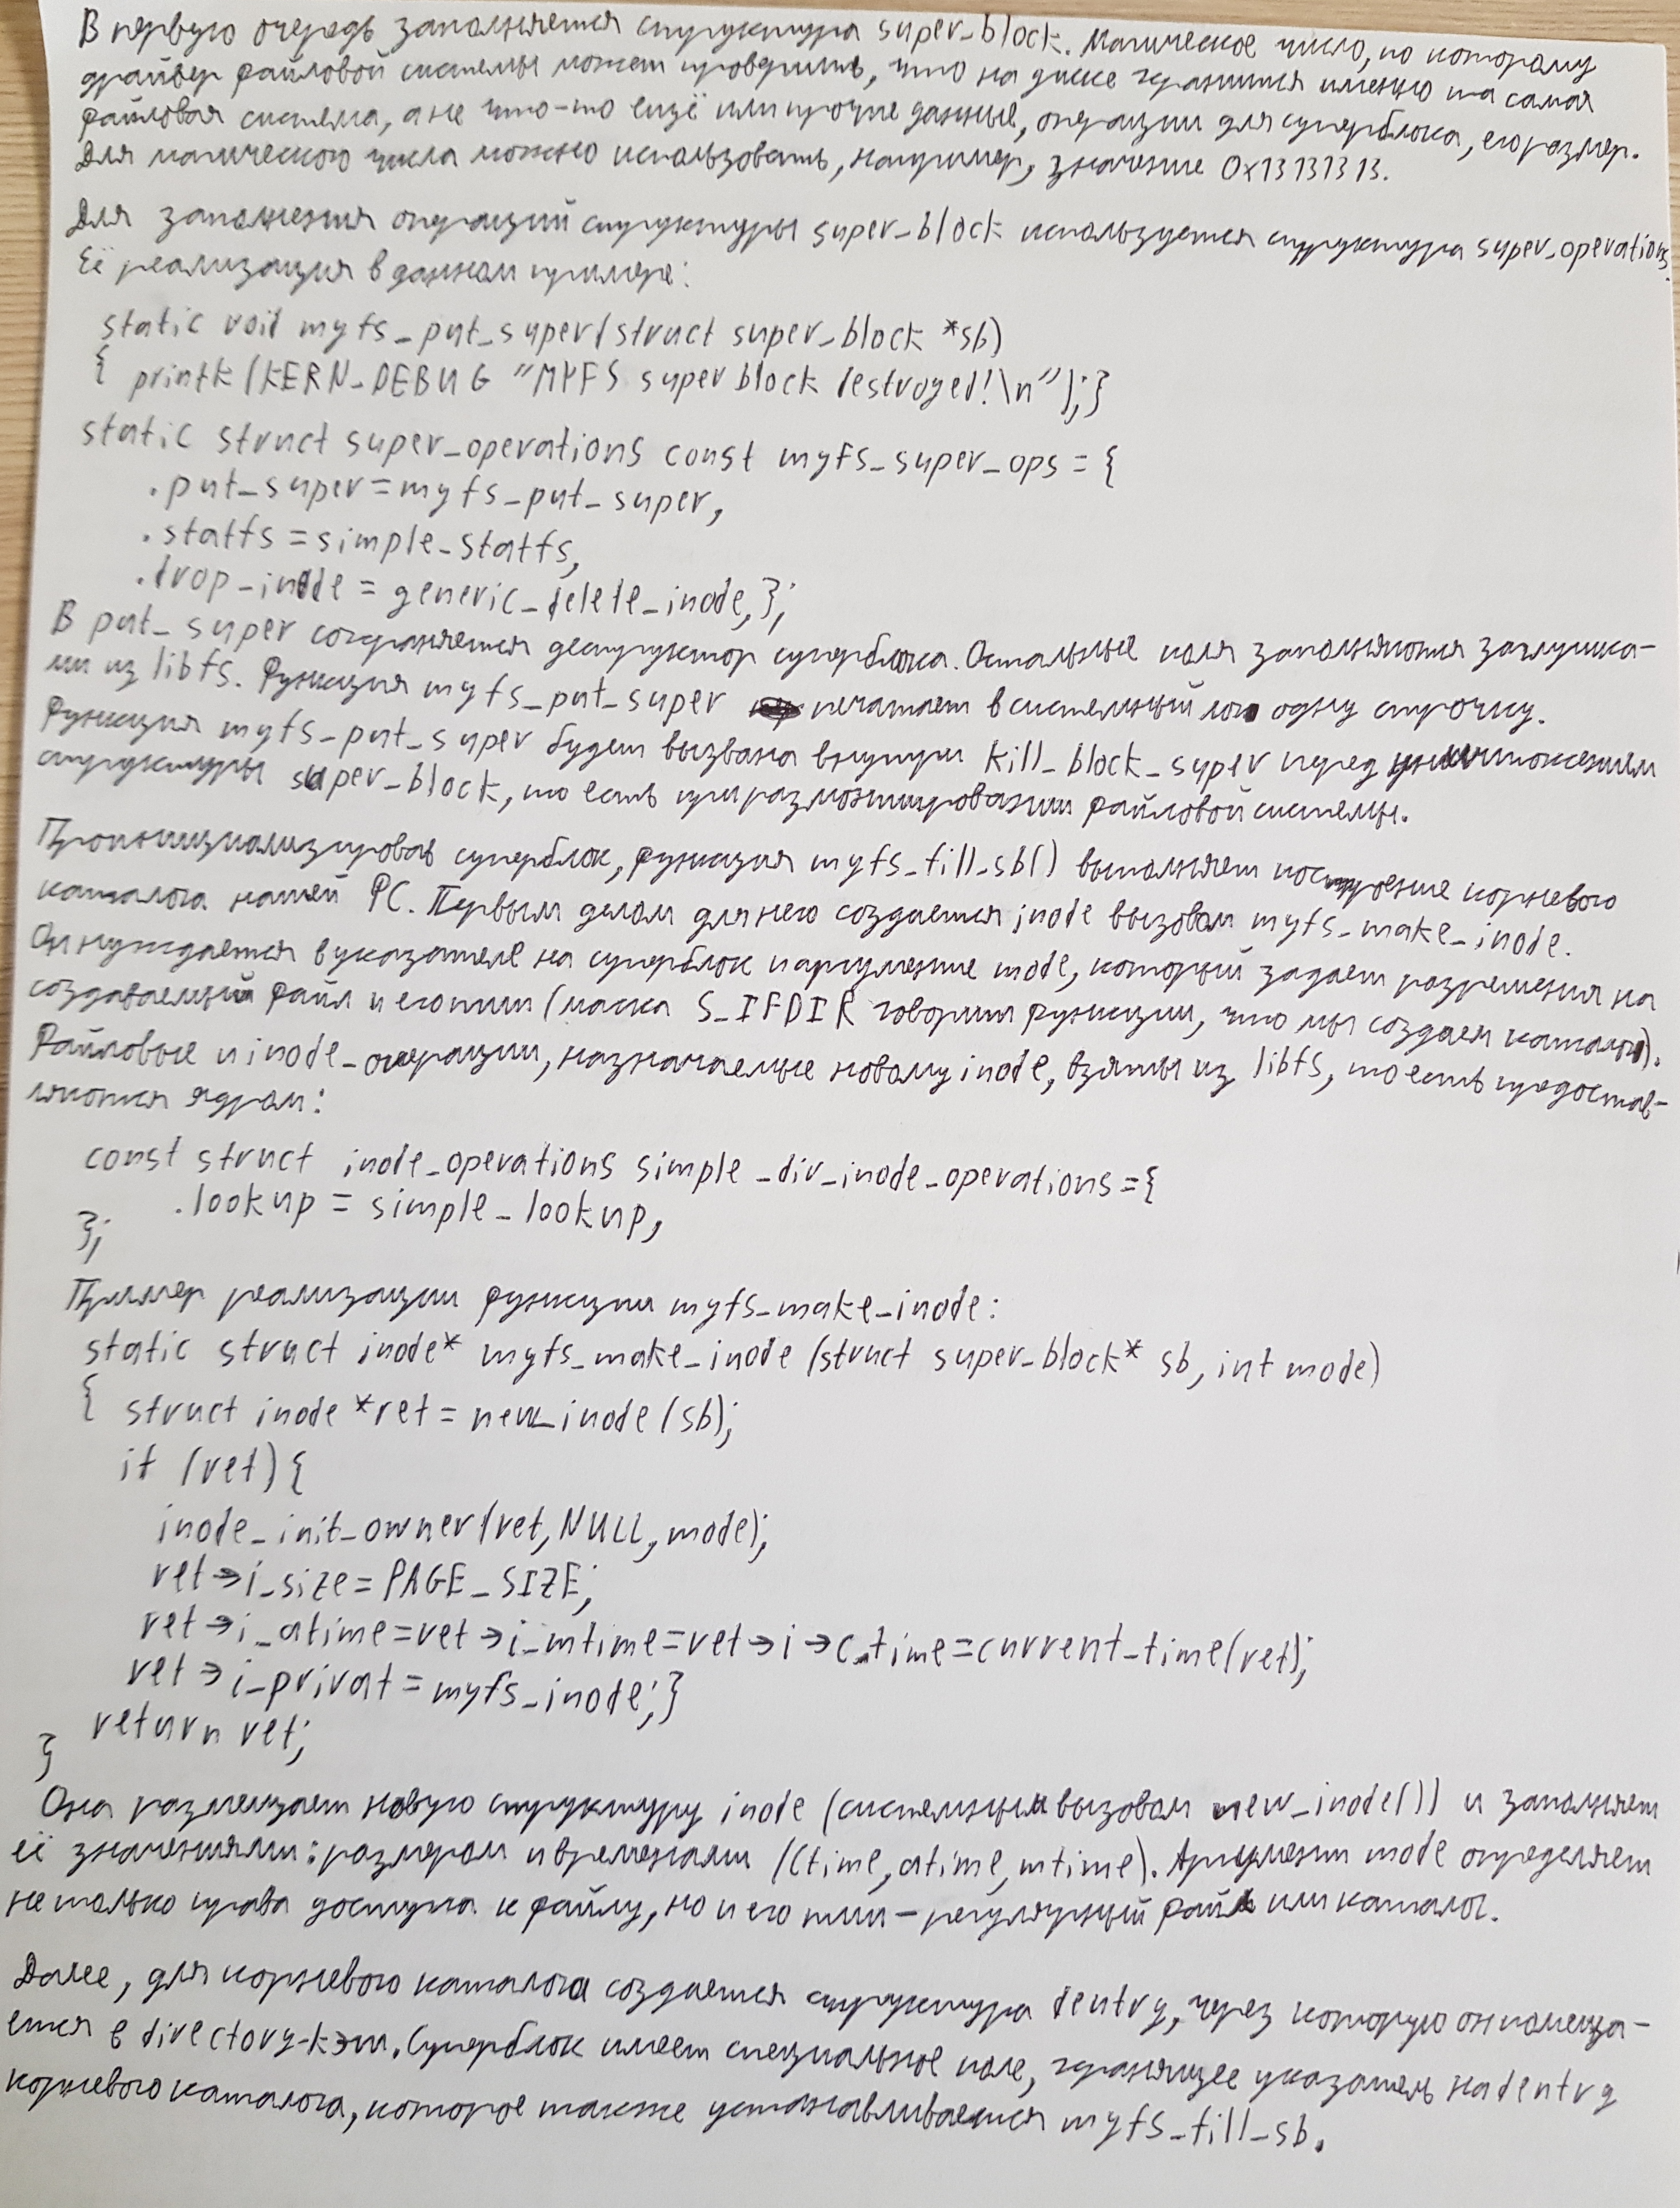 В первую очередь заполняется структура super_block. Магическое число, по которому
драйвер файловой системы может проверить, что на диске хранится именно та самая
файловая система, а не что-то ещё или прочие данные, операции для суперблока, его размер.
Для магического числа можно использовать, например, значение 0x13131313.
Для заполнения операций структуры super_block используется структура super_operations.
Её реализация в данном примере:
static void myfs_put_super(struct super_block *sb)
{ printk(KERN_DEBUG "MYFS super block destroyed!\n");}
static struct super_operations const myfs_super_ops = {
.put_super=myfs_put_super,
.statfs=simple_statfs,
.drop_inode = generic_delete_inode,};
В put_super сохраняется деструктор суперблока. Остальные поля заполняются заглушка-
ми из libfs. Функция myfs_put_super печатает в системный лог одну строчку.
Функция myfs_put_super будет вызвана внутри kill_block_super перед уничтожением
структуры super_block, то есть при размонтировании файловой системы.
Проинициализировав суперблок, функция myfs_fill_sb() выполняет построение корневого
каталога нашей ФС. Первым делом для него создается inode вызовом myfs_make_inode.
Он нуждается в указателе на суперблок и аргументе mode, который задает разрешения на
создаваемый файл и его тип (маска S_IFDIR говорит функции, что мы создаем каталог).
Файловые и inode_операции, назначаемые новому inode, взяты из libfs, то есть предостав-
ляются ядром:
const struct inode_operations simple_dir_inode_operations={
.lookup = simple_lookup,
};
Пример реализации функции myfs_make_inode:
static struct inode* myfs_make_inode (struct super_block* sb, int mode)
{ struct inode *ret = new_inode (sb);
if (ret) {
inode_init_owner(ret, NULL, mode);
ret→i_size=PAGE_SIZE;
ret→i_atime=ret→i_mtime=ret→i→c_time=current_time(ret);
ret→i_privat=myfs_inode;}
return ret;
}
Она размещает новую структуру inode (системным вызовом new_inode()) и заполняет
её значениями: размером и временами (ctime, atime, mtime). Аргумент mode определяет
не только права доступа к файлу, но и его тип – регулярный файл или каталог.
Далее, для корневого каталога создается структура dentry, через которую он помеща-
ется в directory-кэш. Суперблок имеет специальное поле, хранящее указатель на dentry
корневого каталога, которое также устанавливается myfs_fill_sb.